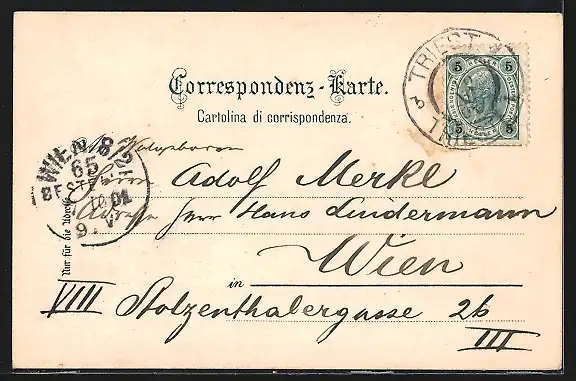 Correspondenz-Karte.
Cartolina di corrispondenza.
TRIEST
TRIESTE
5 5
5 5
WIEN 8/2
65
BESTELLT
10 01
9. V
Nur für die Adresse
Wolgeboren
Herrn Adolf Merkl
Adresse Herr Hans Lindermann
in Wien
VIII Stolzenthalergasse 26
III